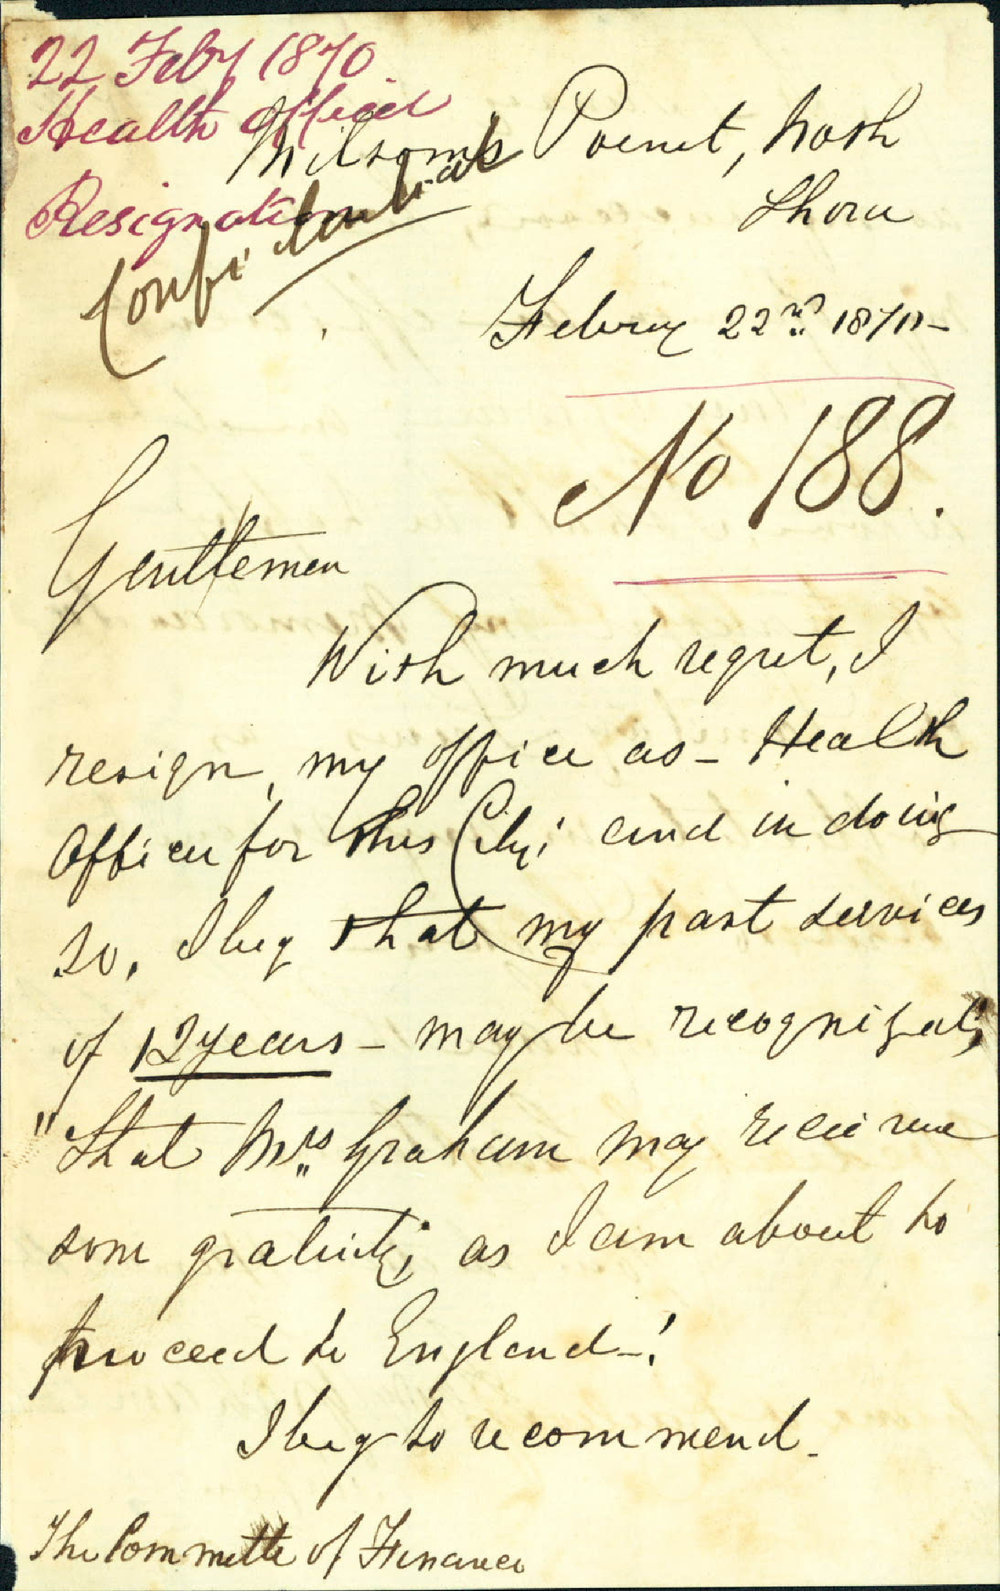 22 Feby 1870
Health officer
Resignation
Confidential
Milsom's Point, North
Shore
Februy 22nd 1870-
No 188.
Gentlemen
With much regret, I
resign, my office as - Health
Officer for this City; and in doing
so, I beg that my past services
of 12 years - may be recognized;
"That Mrs Graham may receive
som gratuity; as I am about to
proceed to England-!
I beg to recommend.
The Committe of Finance